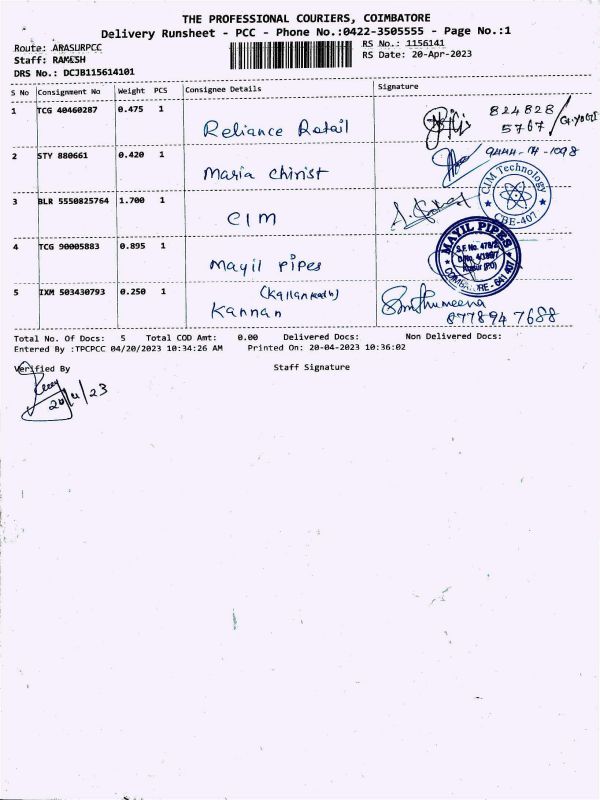 THE PROFESSIONAL COURIERS, COIMBATORE
Delivery Runsheet - PCC - Phone No.:0422-3505555 - Page No.:1
Route: ARASURPCC
RS No.: 1156141
Staff: RAMESH
RS Date: 20-Apr-2023
DRS No.: DCJB115614101
S No Consignment No Weight PCS Consignee Details Signature
1 TCG 40460287 0.475 1 Reliance Retail 824828 5767
2 STY 880661 0.420 1 Maria Chirist
CIM Technology
CBE-407
3 BLR 5550825764 1.700 1 CIM
4 TCG 90005883 0.895 1 Mayil Pipes
MAYIL PIPES
S.F.No. 478/2
Arasur (PO)
COIMBATORE - 641 407
5 IXM 503430793 0.250 1 Kannan
877894 7688
Total No. Of Docs: 5 Total COD Amt: 0.00 Delivered Docs: Non Delivered Docs:
Entered By :TPCPCC 04/20/2023 10:34:26 AM Printed On: 20-04-2023 10:36:02
Verified By Staff Signature
20/4/23